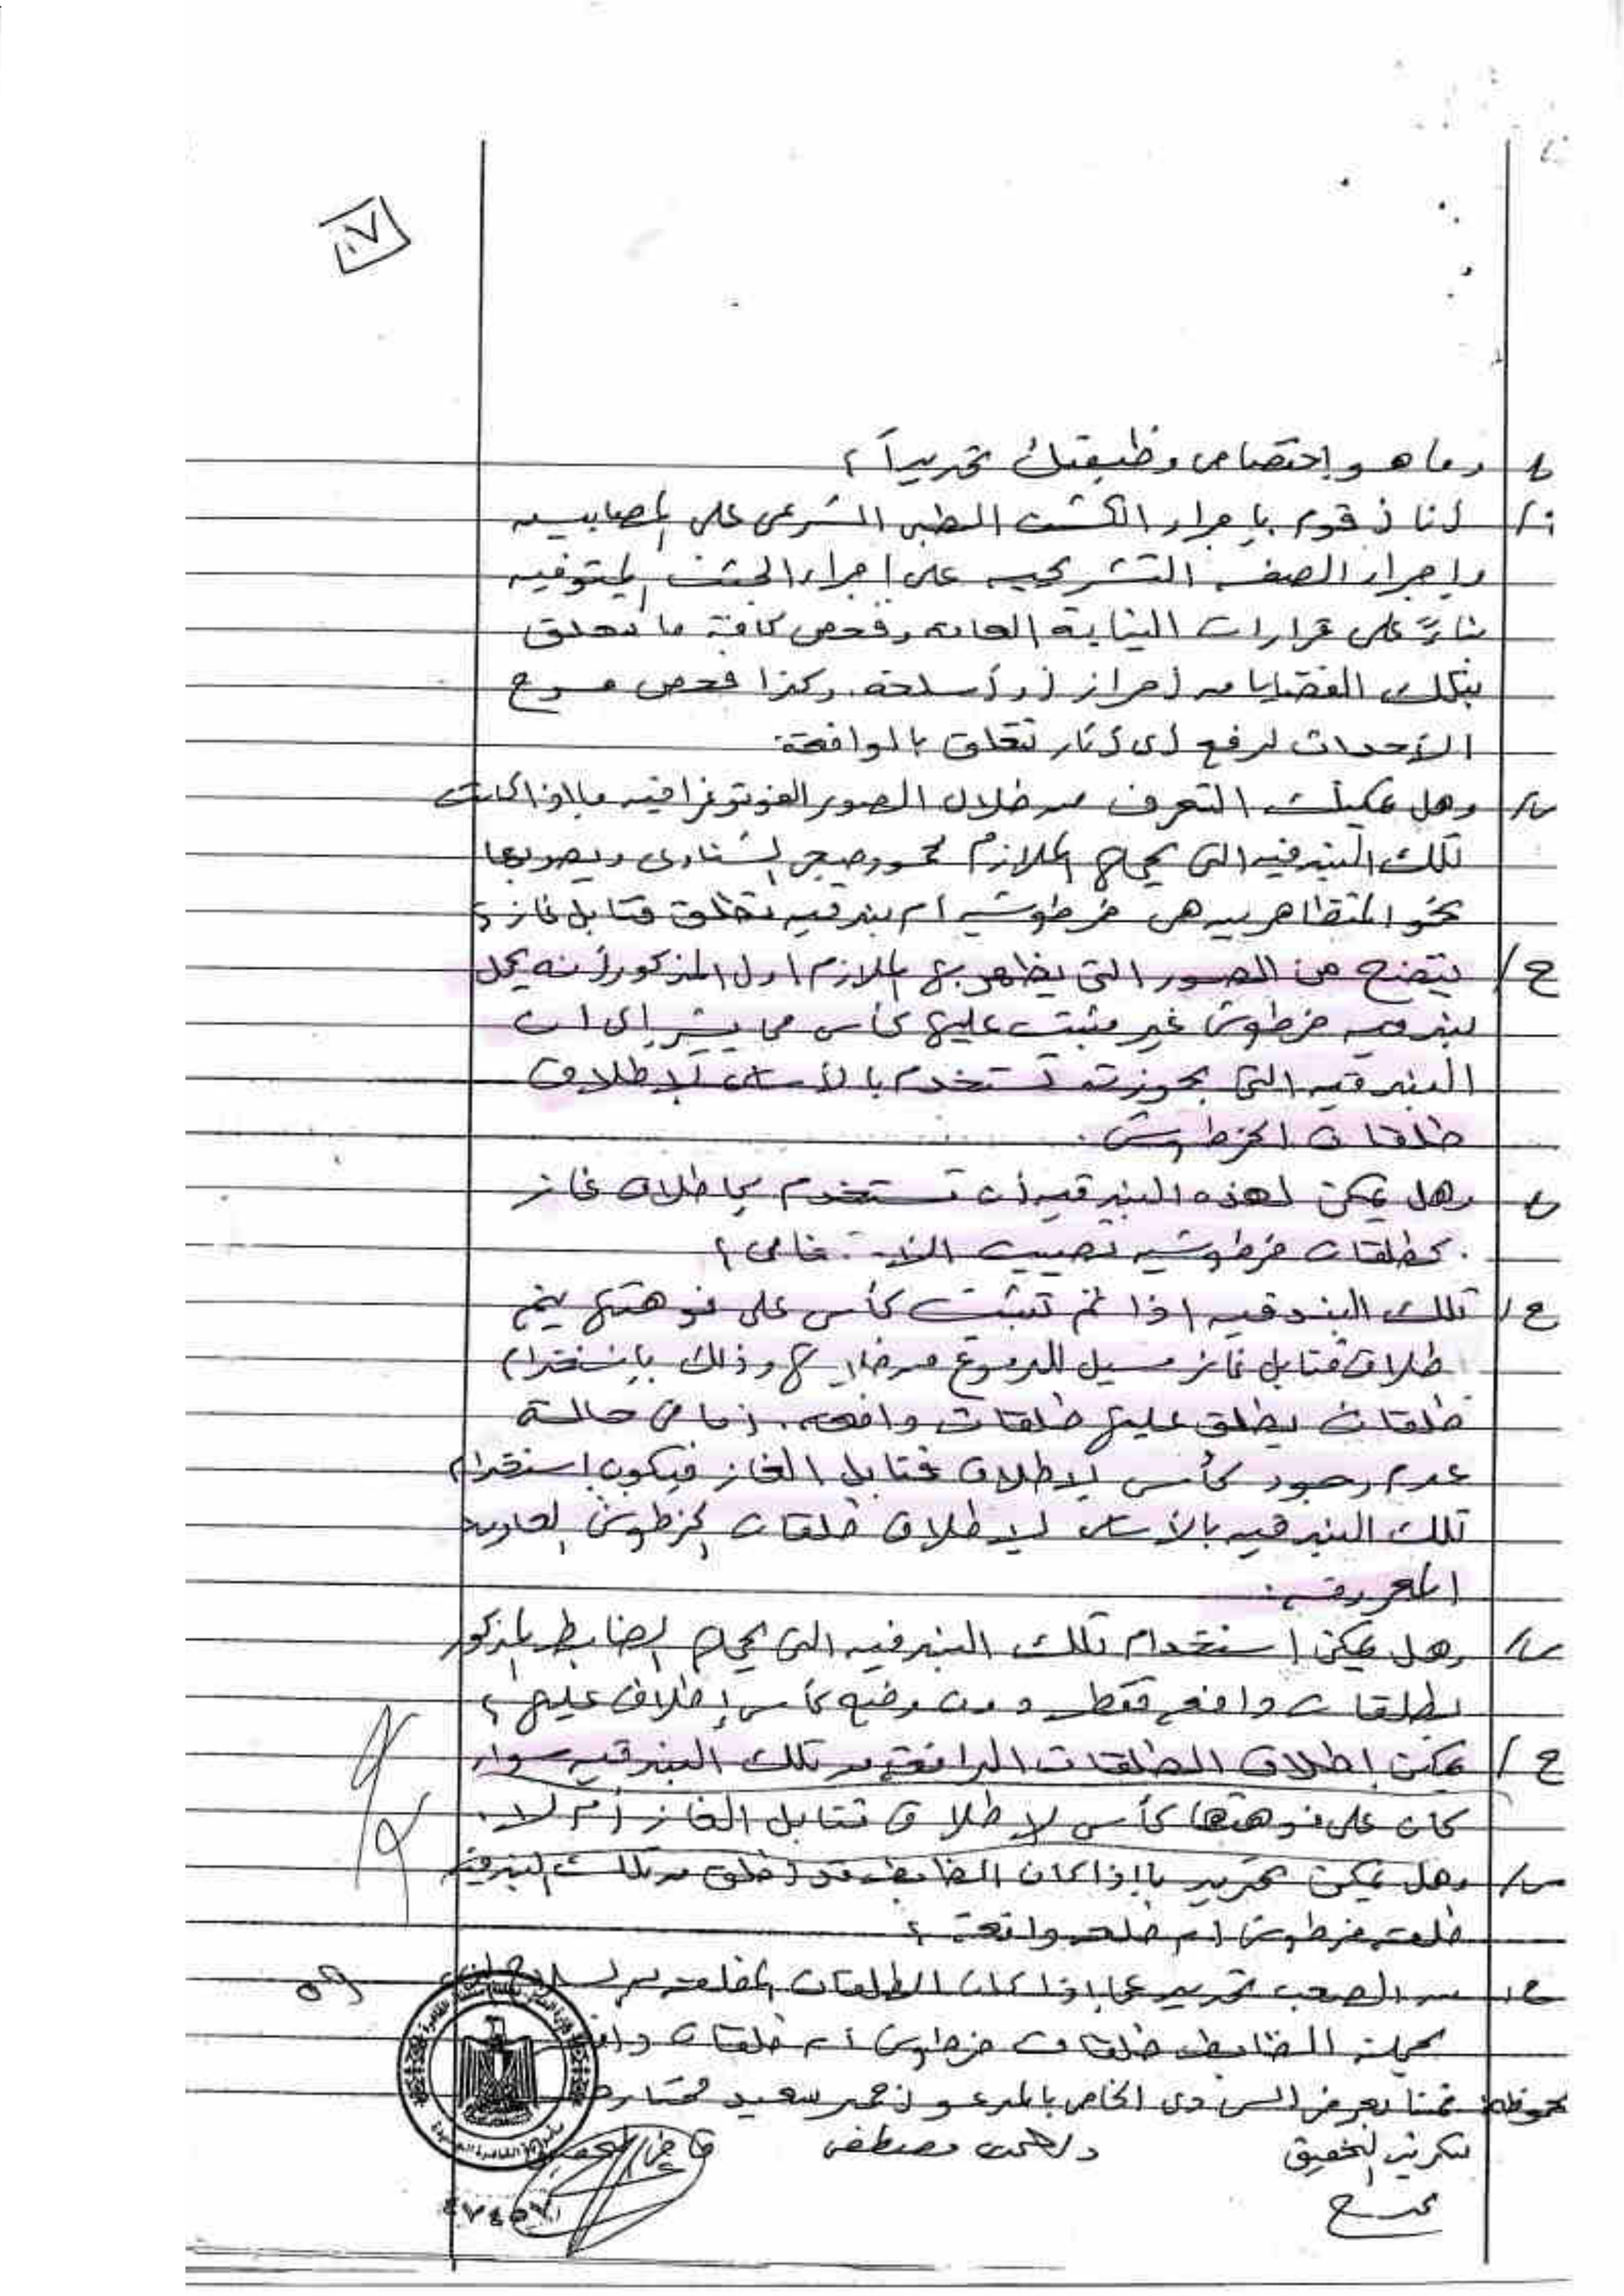 ٧
س/ وما هو إختصاص وظيفتك تحديداً ؟
ج/ أنا أقوم بإجراء الكشف الطبى الشرعى على المصابين
وإجراء الصفه التشريحيه على إجراء الجثث المتوفيه
بناءً على قرارات النيابة العامه وفحص كافة ما تعلق
بتلك القضايا من أحراز أو أسلحة. وكذا فحص مسرح
الأحداث لرفع أى آثار تتعلق بالواقعة.
س/ وهل يمكنك التعرف من خلال الصور الفوتوغرافيه ما اذا كانت
تلك البندقيه التى يحملها الملازم محمود صبحى الشناوى ويصوبها
نحو المتظاهرين هى خرطوش أم بندقيه تطلق قنابل غاز ؟
ج/ يتضح من الصور التى يظهر بها الملازم اول المذكور أنه يحمل
بندقيه خرطوش غير مثبت عليها كأس مما يشير إلى ان
البندقيه التى بحوزته تستخدم بالأساس لإطلاق
طلقات الخرطوش.
س/ وهل يمكن لهذه البندقيه أن تستخدم بإطلاق غاز
كطلقات خرطوش تصيب
ج/ تلك البندقيه اذا تم تثبت كأس على فوهتها يتم
إطلاق قنابل غاز مسيل للدموع من خلالها وذلك بإستخدام
طلقات يطلق عليها طلقات دافعه. أما فى حالة
عدم وجود كأس لإطلاق قنابل الغاز فيكون إستخدام
تلك البندقيه بالأساس لإطلاق طلقات الخرطوش العاديه
المعروفه.
س/ وهل يمكن إستخدام تلك البندقيه التى يحملها الضابط المذكور
بطلقات دافعه فقط دون وضع كأس إطلاق عليها ؟
ج/ يمكن إطلاق الطلقات الدافعه من تلك البندقيه سواء
كان على فوهتها كأس لإطلاق قنابل الغاز أم لا.
س/ وهل يمكن تحديد ما إذا كان الضابط قد أطلق من تلك البندقيه
طلقه خرطوش أم طلقه دافعة ؟
ج/ من الصعب تحديد عما إذا كان الطلقات المطلقه من السلاح الذى
يحمله الضابط طلقات خرطوش أم طلقات دافعه
ملحوظه: قمنا بعرض السى دى الخاص بالمدعو أحمد سعيد مختار
سكرتير التحقيق
د/ أحمد مصطفى
قاضى التحقيق
٥٩